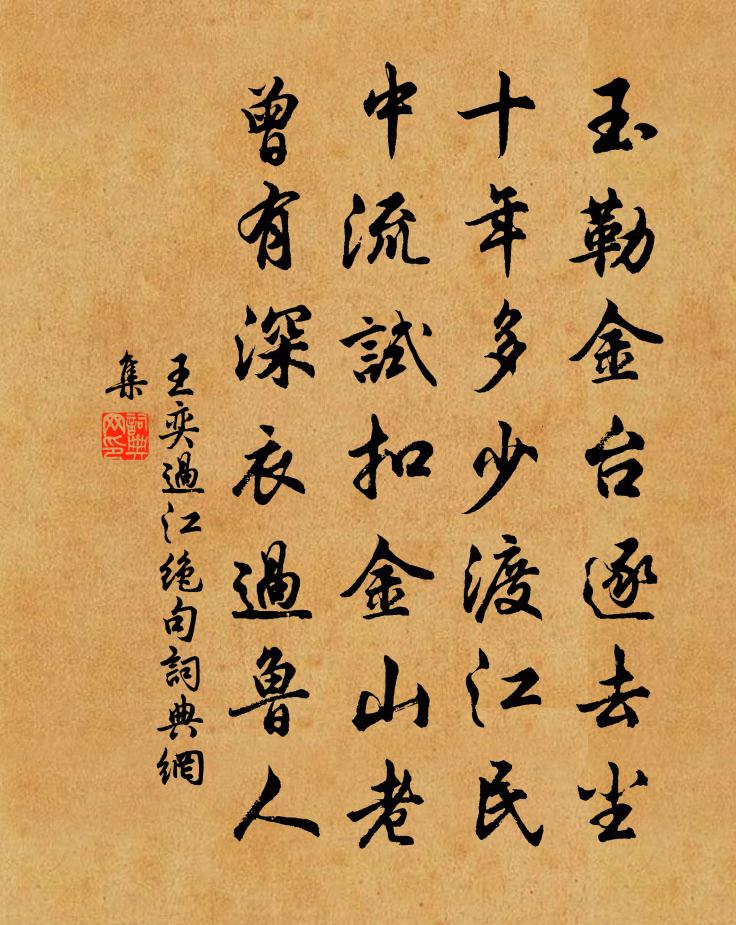 玉勒金台逐去尘
十年多少渡江民
中流試扣金山老
曾有深衣過魯人
王奕過江絶句詞典網
集
詞典网印